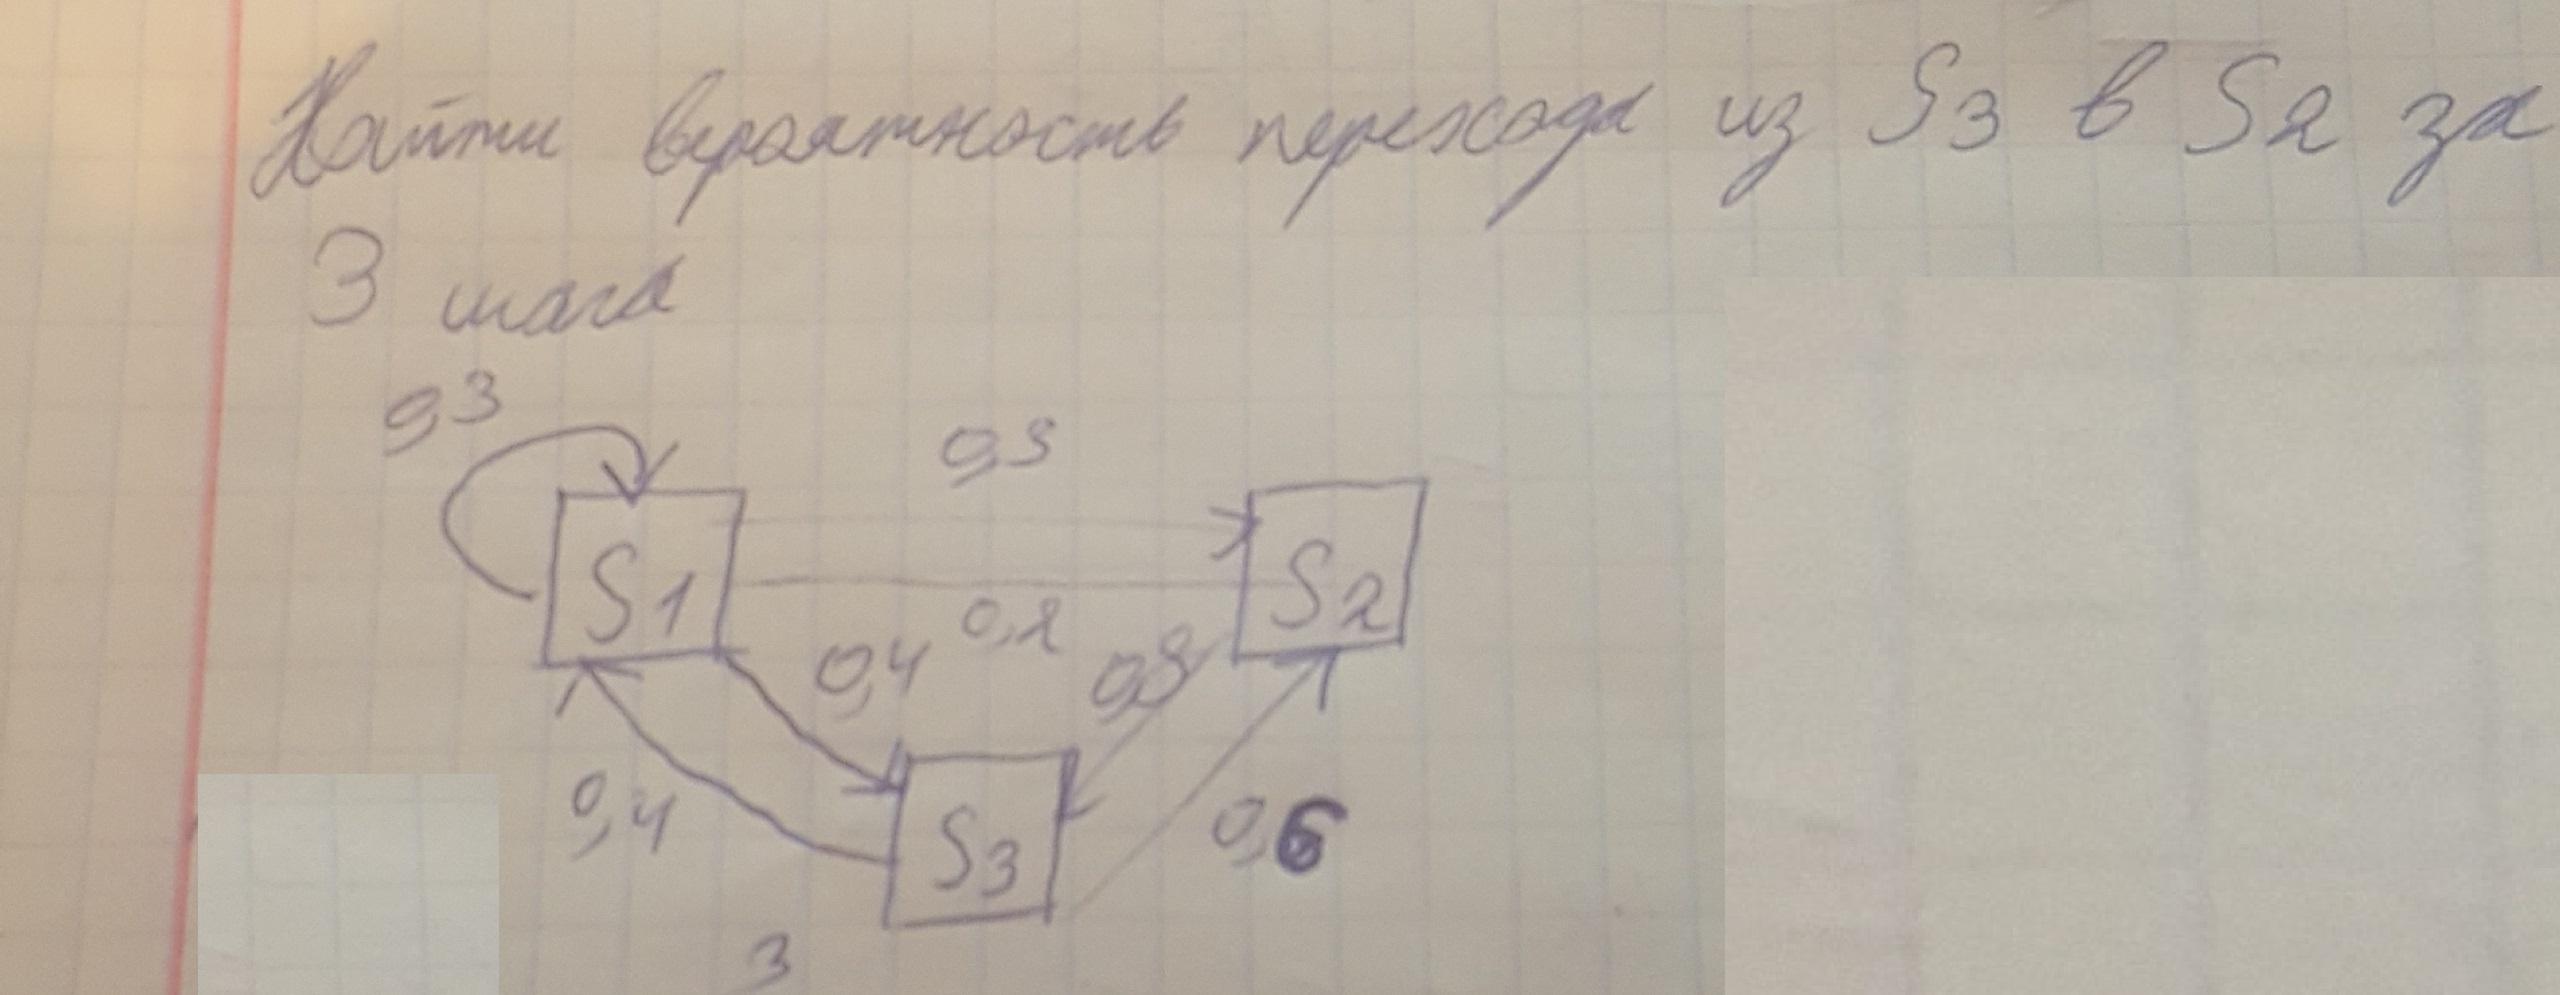 Найти вероятность перехода из S3 в S2 за
3 шага
0,3
0,3
S1
S2
0,2
0,4
0,8
0,4
S3
0,6
3